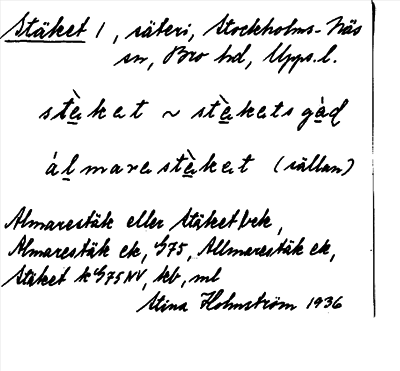 Stäket 1, säteri, Stockholms-Näs
sn, Bro hd, Upps.l.
stä̀ket ~ stä̀kets gå̀d
álmarestä̀ket (sällan)
Almarestäk eller Stäket bek,
Almarestäk ek, G75, Allmarestäk ek,
Stäket k G75NV, kb, ml
Stina Holmström 1936